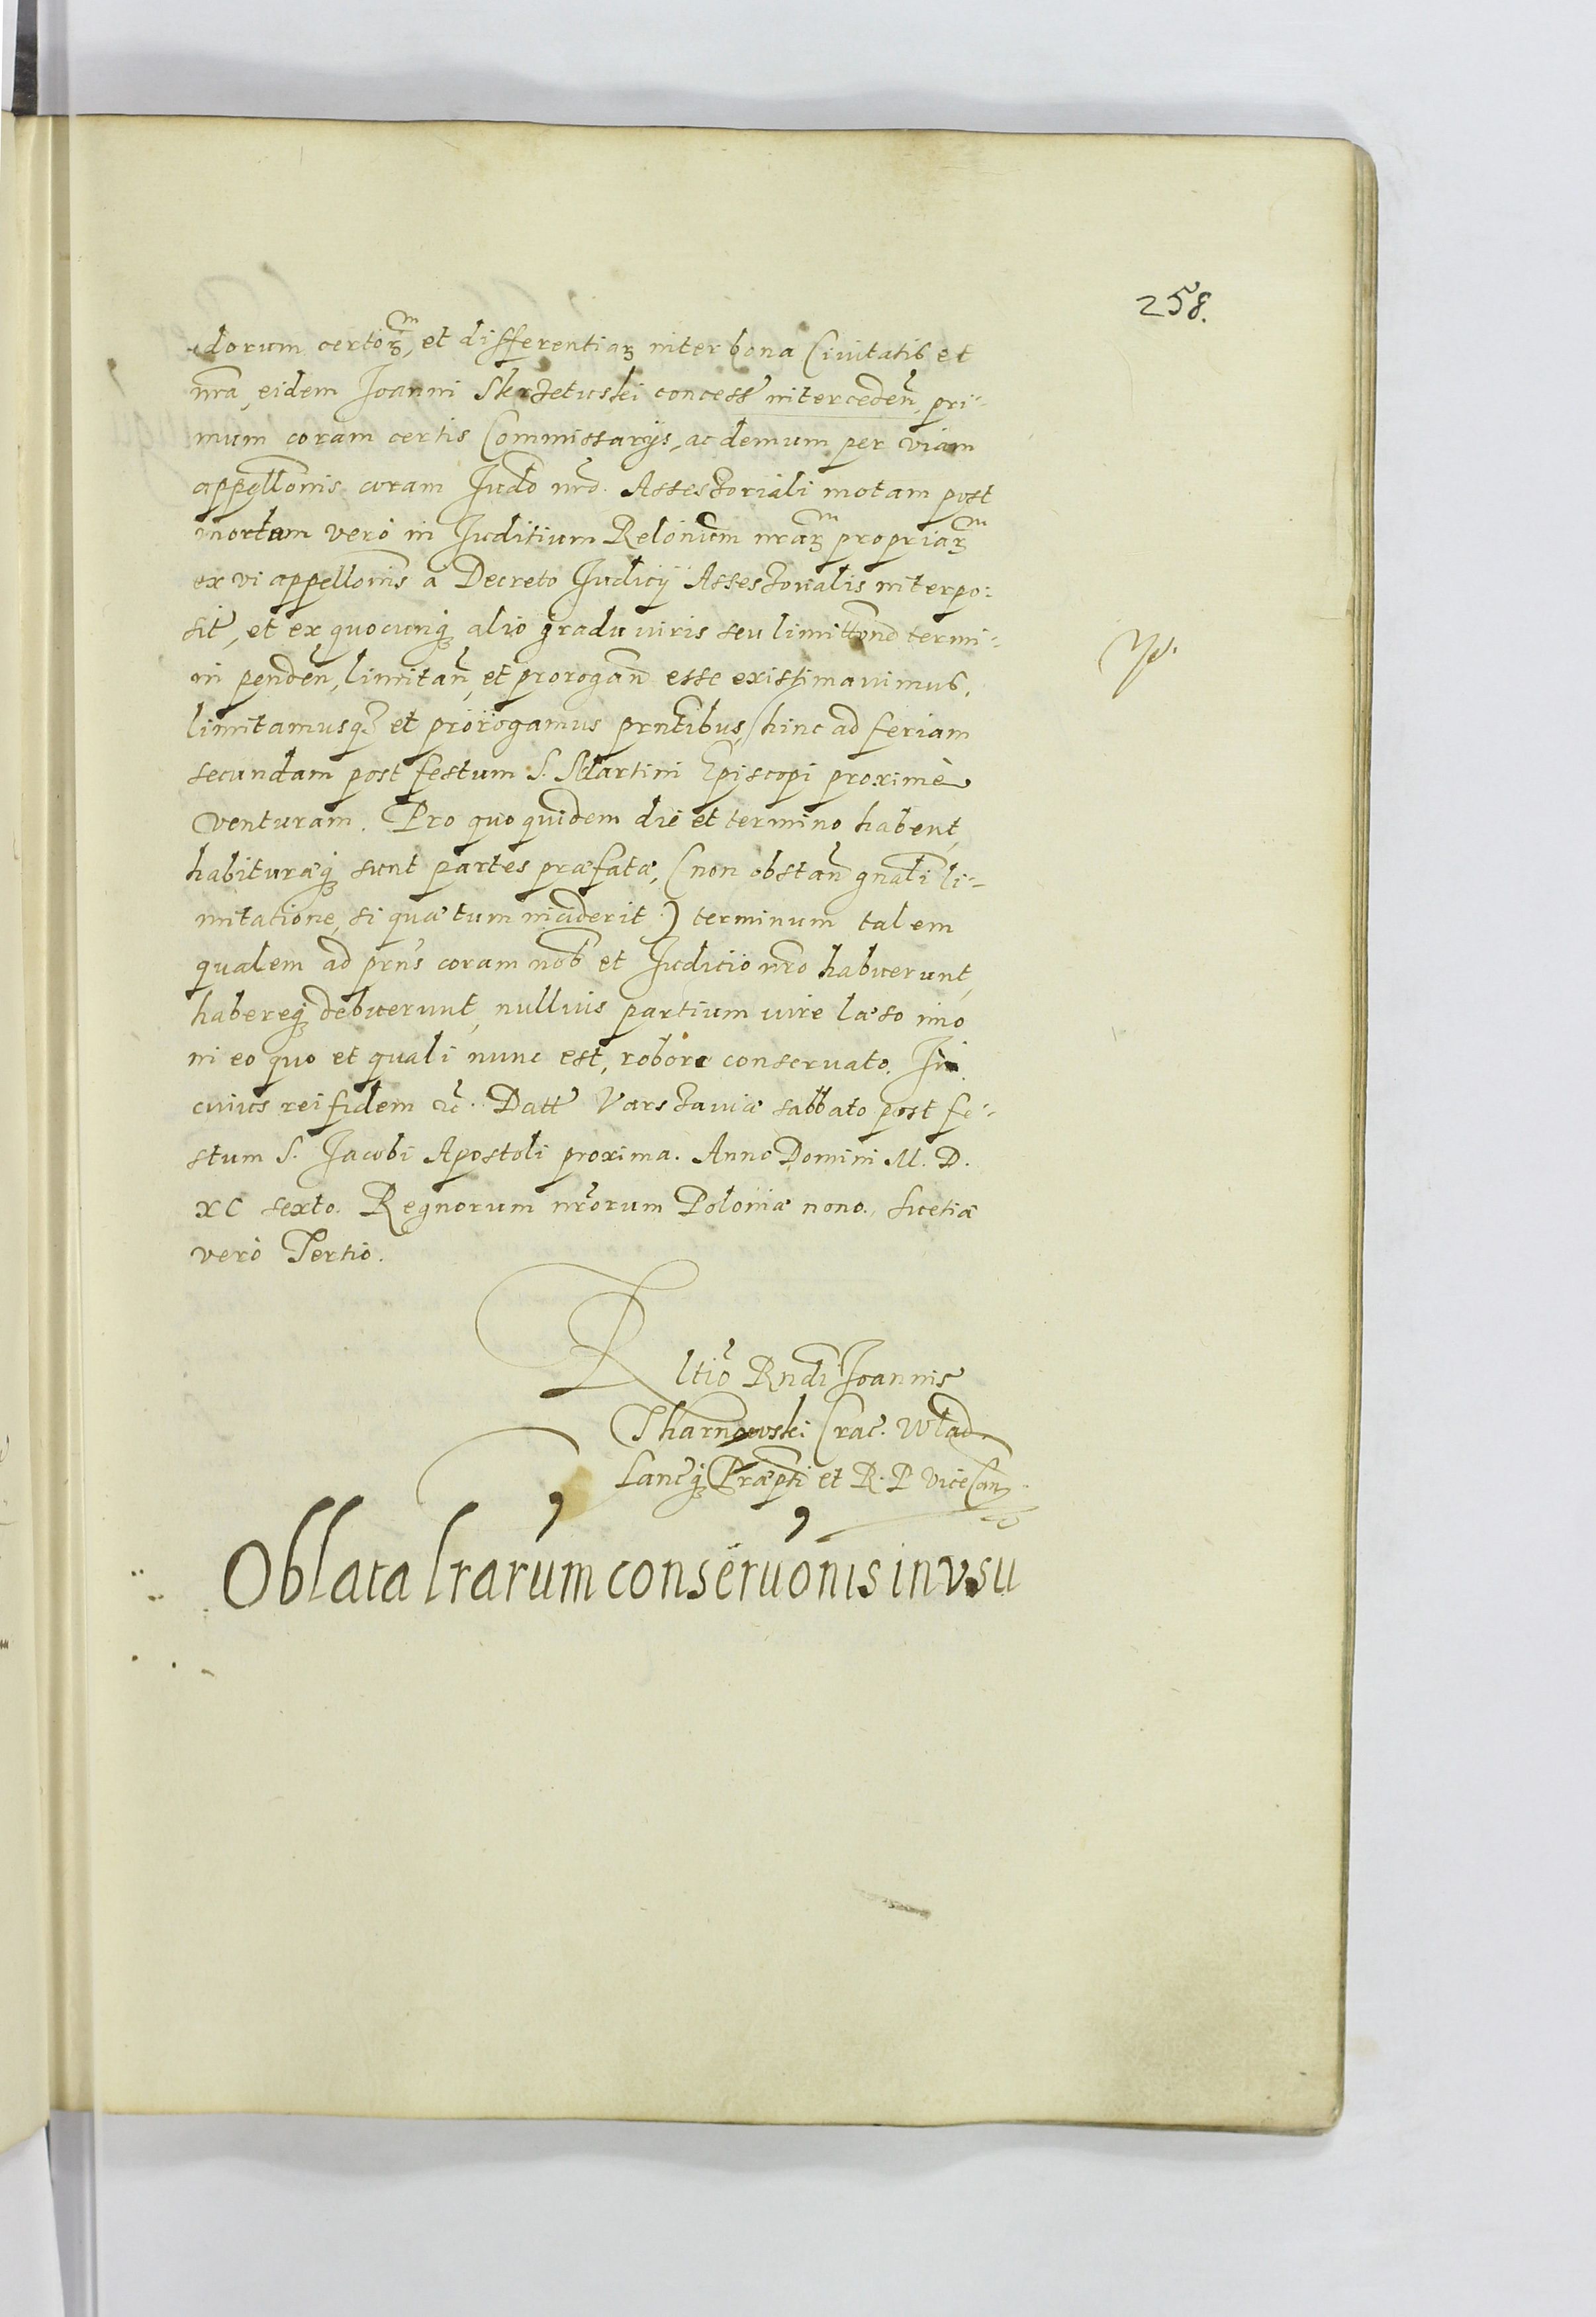 258.
dorum certoꝝ, et differentiaꝝ inter bona Ciuitatis et
nrã, eidem Joanni Skrzetuski concess̃ intercedeñ, pri-
mum coram certis Commissarijs, ac demum per viam
appellõnis coram Judõ nrõ Assessoriali motam post
mortem verò in Juditium Relõnum nraꝝ propriaꝝ
ex vi appellõnis à Decreto Judicij Assessorialis interpo:
sit̃, et ex quocunq́ʒ alio gradu iuris seu limittõnd termi-
ni pendeñ, limitañ, et prorogand̃ esse existimauimus,
limitamusqʒ et prorogamus prñtibus, hinc ad feriam
secundam post festum S. Martini Episcopi proximè
venturam. Pro quo quidem die et termino habent,
habituræq́ʒ sunt partes præfatæ, (non obstañ gnãli li-
mitatione, si quæ tum inciderit) terminum talem
qualem ad prñs coram nob̃ et Judicio nrõ habuerunt,
habereq́ʒ debuerunt, nullius partium iure læso imo
in eo quo et quali nunc est, robore conseruato. In
cuius rei fidem &c̃. Datt̃ Varszauiæ sabbato post fe-
stum S. Jacobi Apostoli proxima. Anno Domini M. D.
XC sexto. Regnorum nrõrum Poloniæ nono, Suetiæ
verò Tertio.
Rltiõ Rndĩ Joannis
Tharnowski Crac̃. Wlad.
Lancq́ʒ Præpti et R. P. ViceCan
Oblata lrarum conseruõnis in vsu